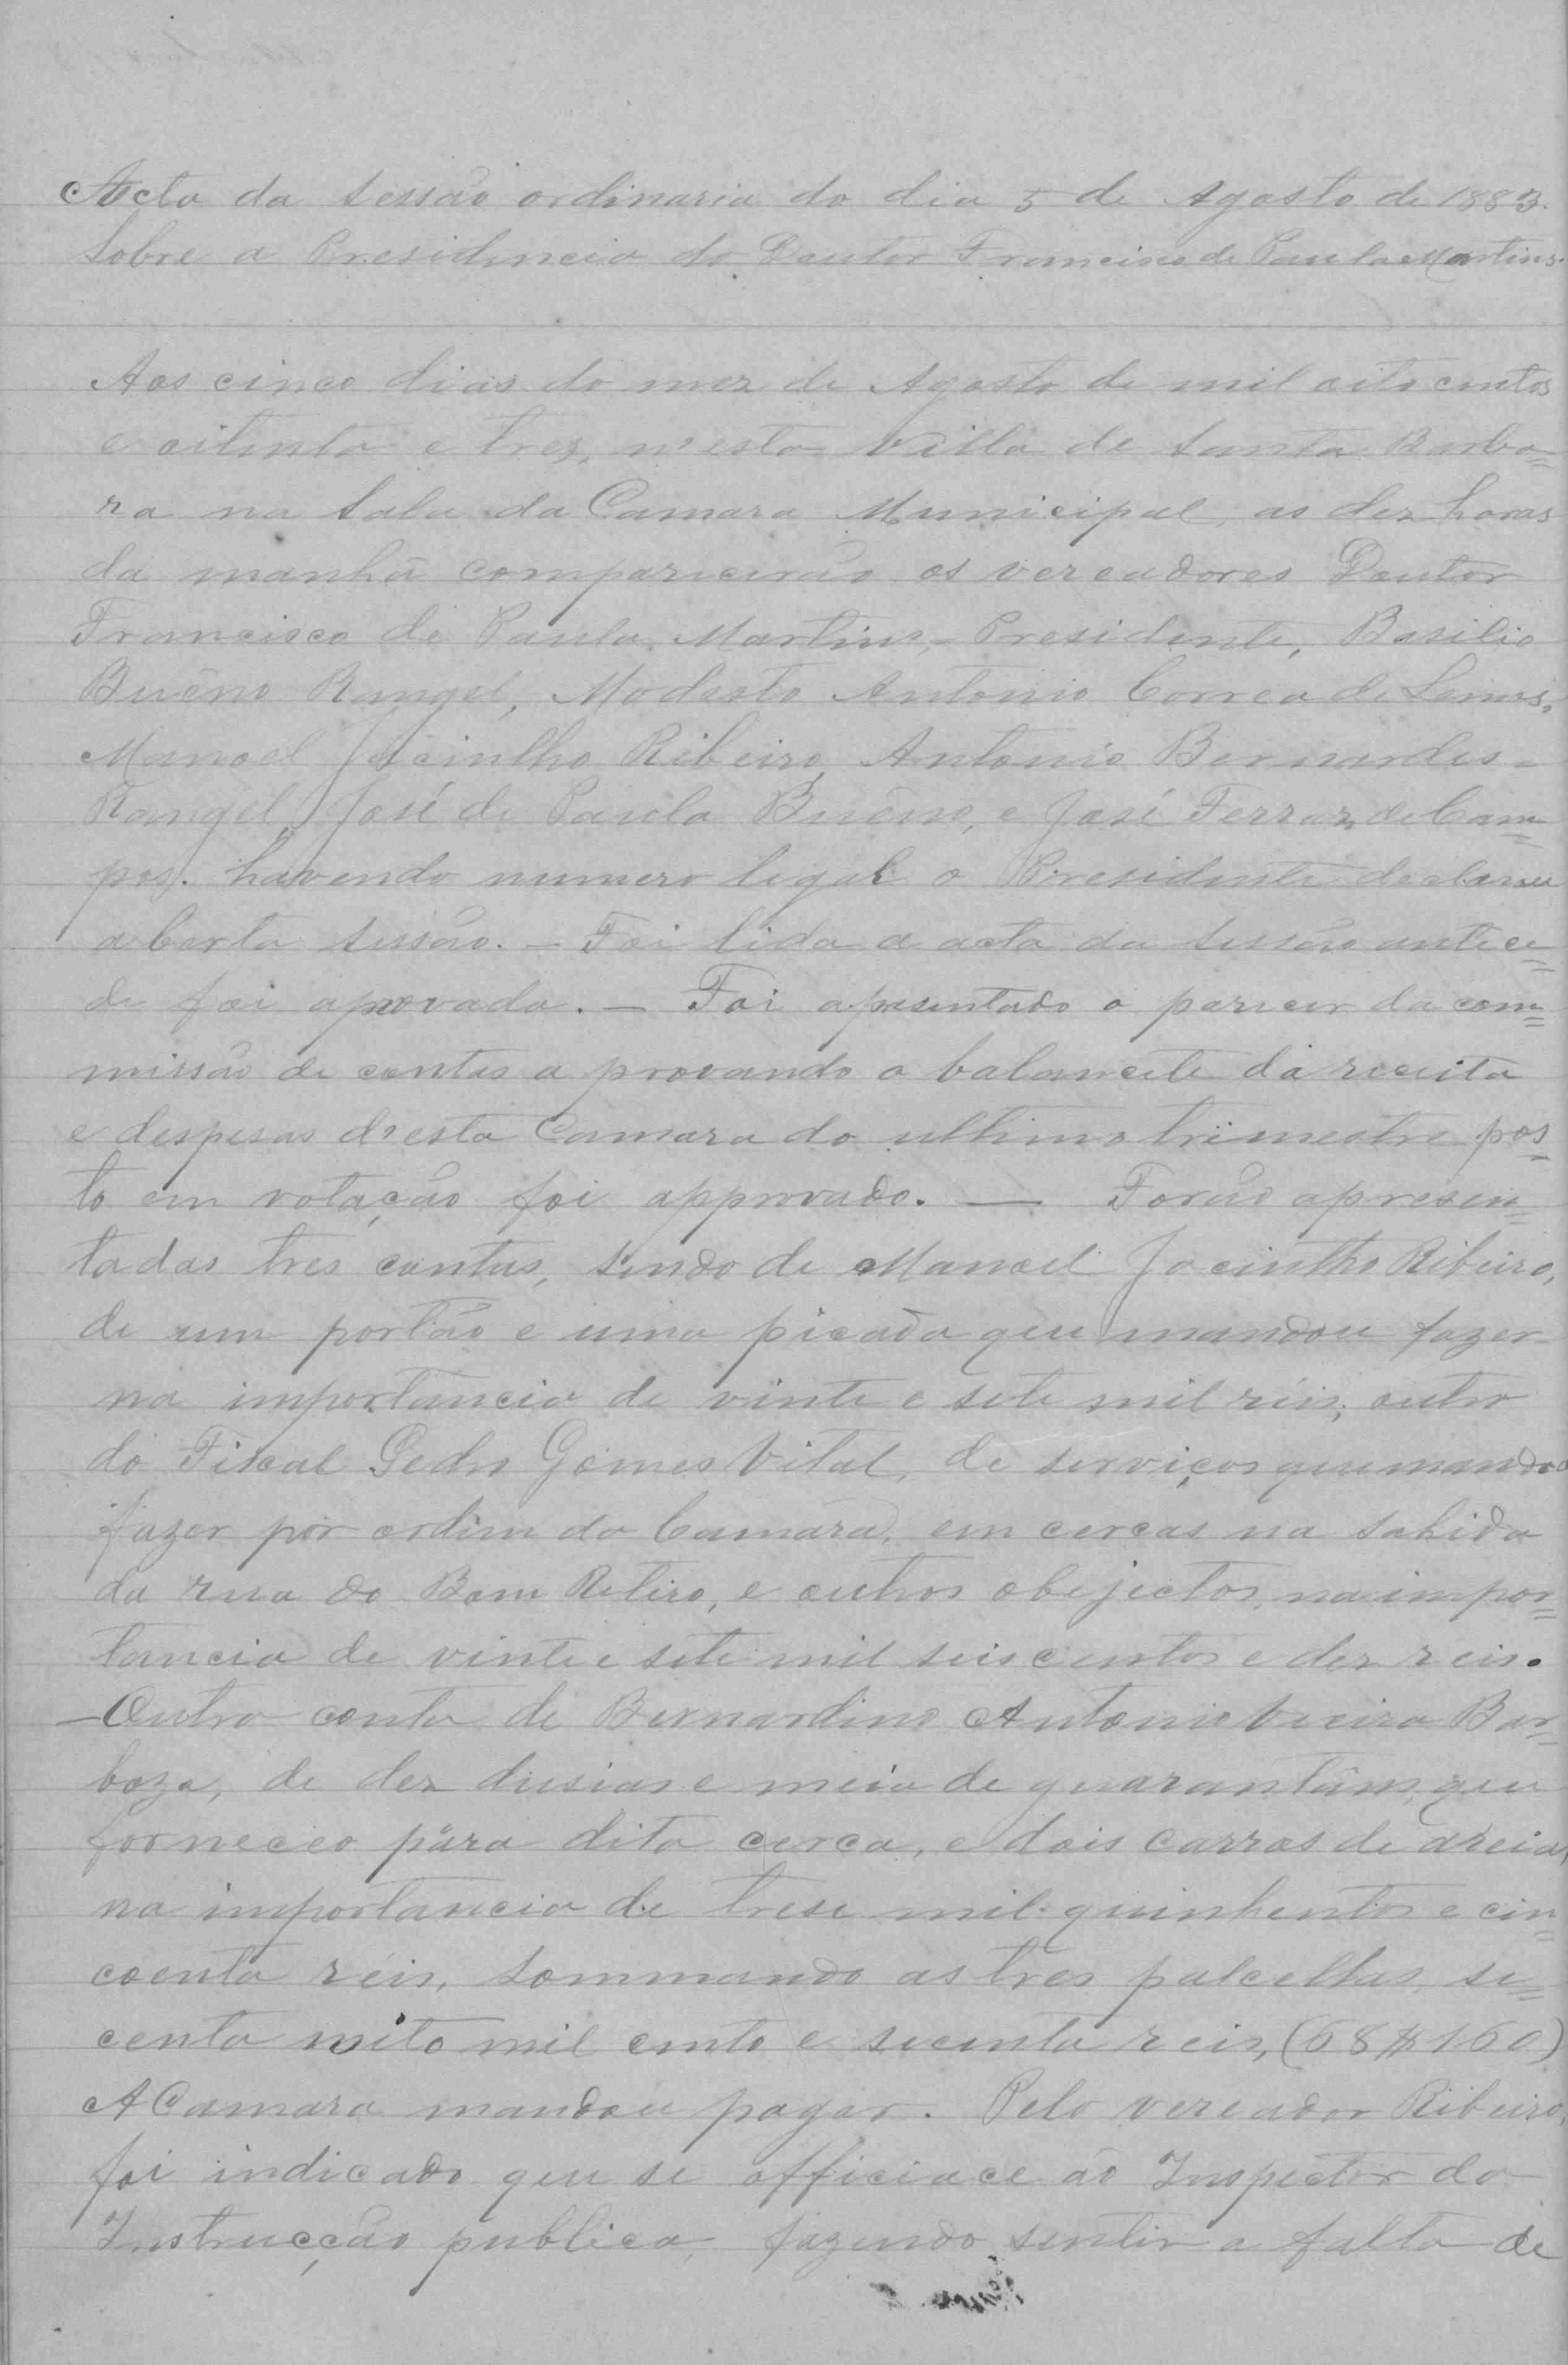 Acta da sessão ordinaria do dia 5 de Agosto de 1883.
Sobre a Presidencia do Doutor Francisco de Paula Martins.
Aos cinco dias do mez de Agosto de mil oito centos
e oitenta e trez, n'esta Villa de Santa Barba=
ra na Sala da Camara Municipal, as dez horas
da manhã comparicerão os vereadores Doutor
Francisco de Paula Martins,- Presidente, Basilio
Buêno Rangel, Modesto Antonio Correa de Lemos,
Manoel Jacintho Ribeiro, Antonio Bernardes-
Rangel, José de Paula Buêno, e José Ferraz de Cam=
pos. havendo numero ligal o Presidente declarou
aberta sessão. - Foi lida a acta da sessão antece=
de foi aprovada. - Foi apresentado o parecer da com=
missão de contas a provando o balancete da riceita
e despesas d'esta Camara do ultimo trimestre pos=
to em votação foi approvado. — Forão apresen=
tadas tres contas, sendo de Manoel Jacintho Ribeiro,
de um portão e uma picada que mandou fazer
na importancia de vinte e sete mil réis; outro
do Fiscal Pedro Gomes Vital, de serviços que mandou
fazer por ordim da Camara, em cercas na sahida
da rua do Bom Retiro, e outros obejectos, na impor=
tancia de vinte e sete mil seis centos e dez reis.
-Outra conta de Bernardino Antonio Vieira Bar=
boza, de dez dusias e meia de guarantãns, que
forneceo para dita cerca, e dois carros de areia,
na importancia de trese mil quinhentos e cin=
coenta réis, sommando as tres palcellas, se=
centa oito mil cento e secenta reis, (68$160)
A Camara mandou pagar. Pelo vereador Ribeiro,
foi indicado que se officiace ao Inspector da
Instrucção publica, fazendo sentir a falta de